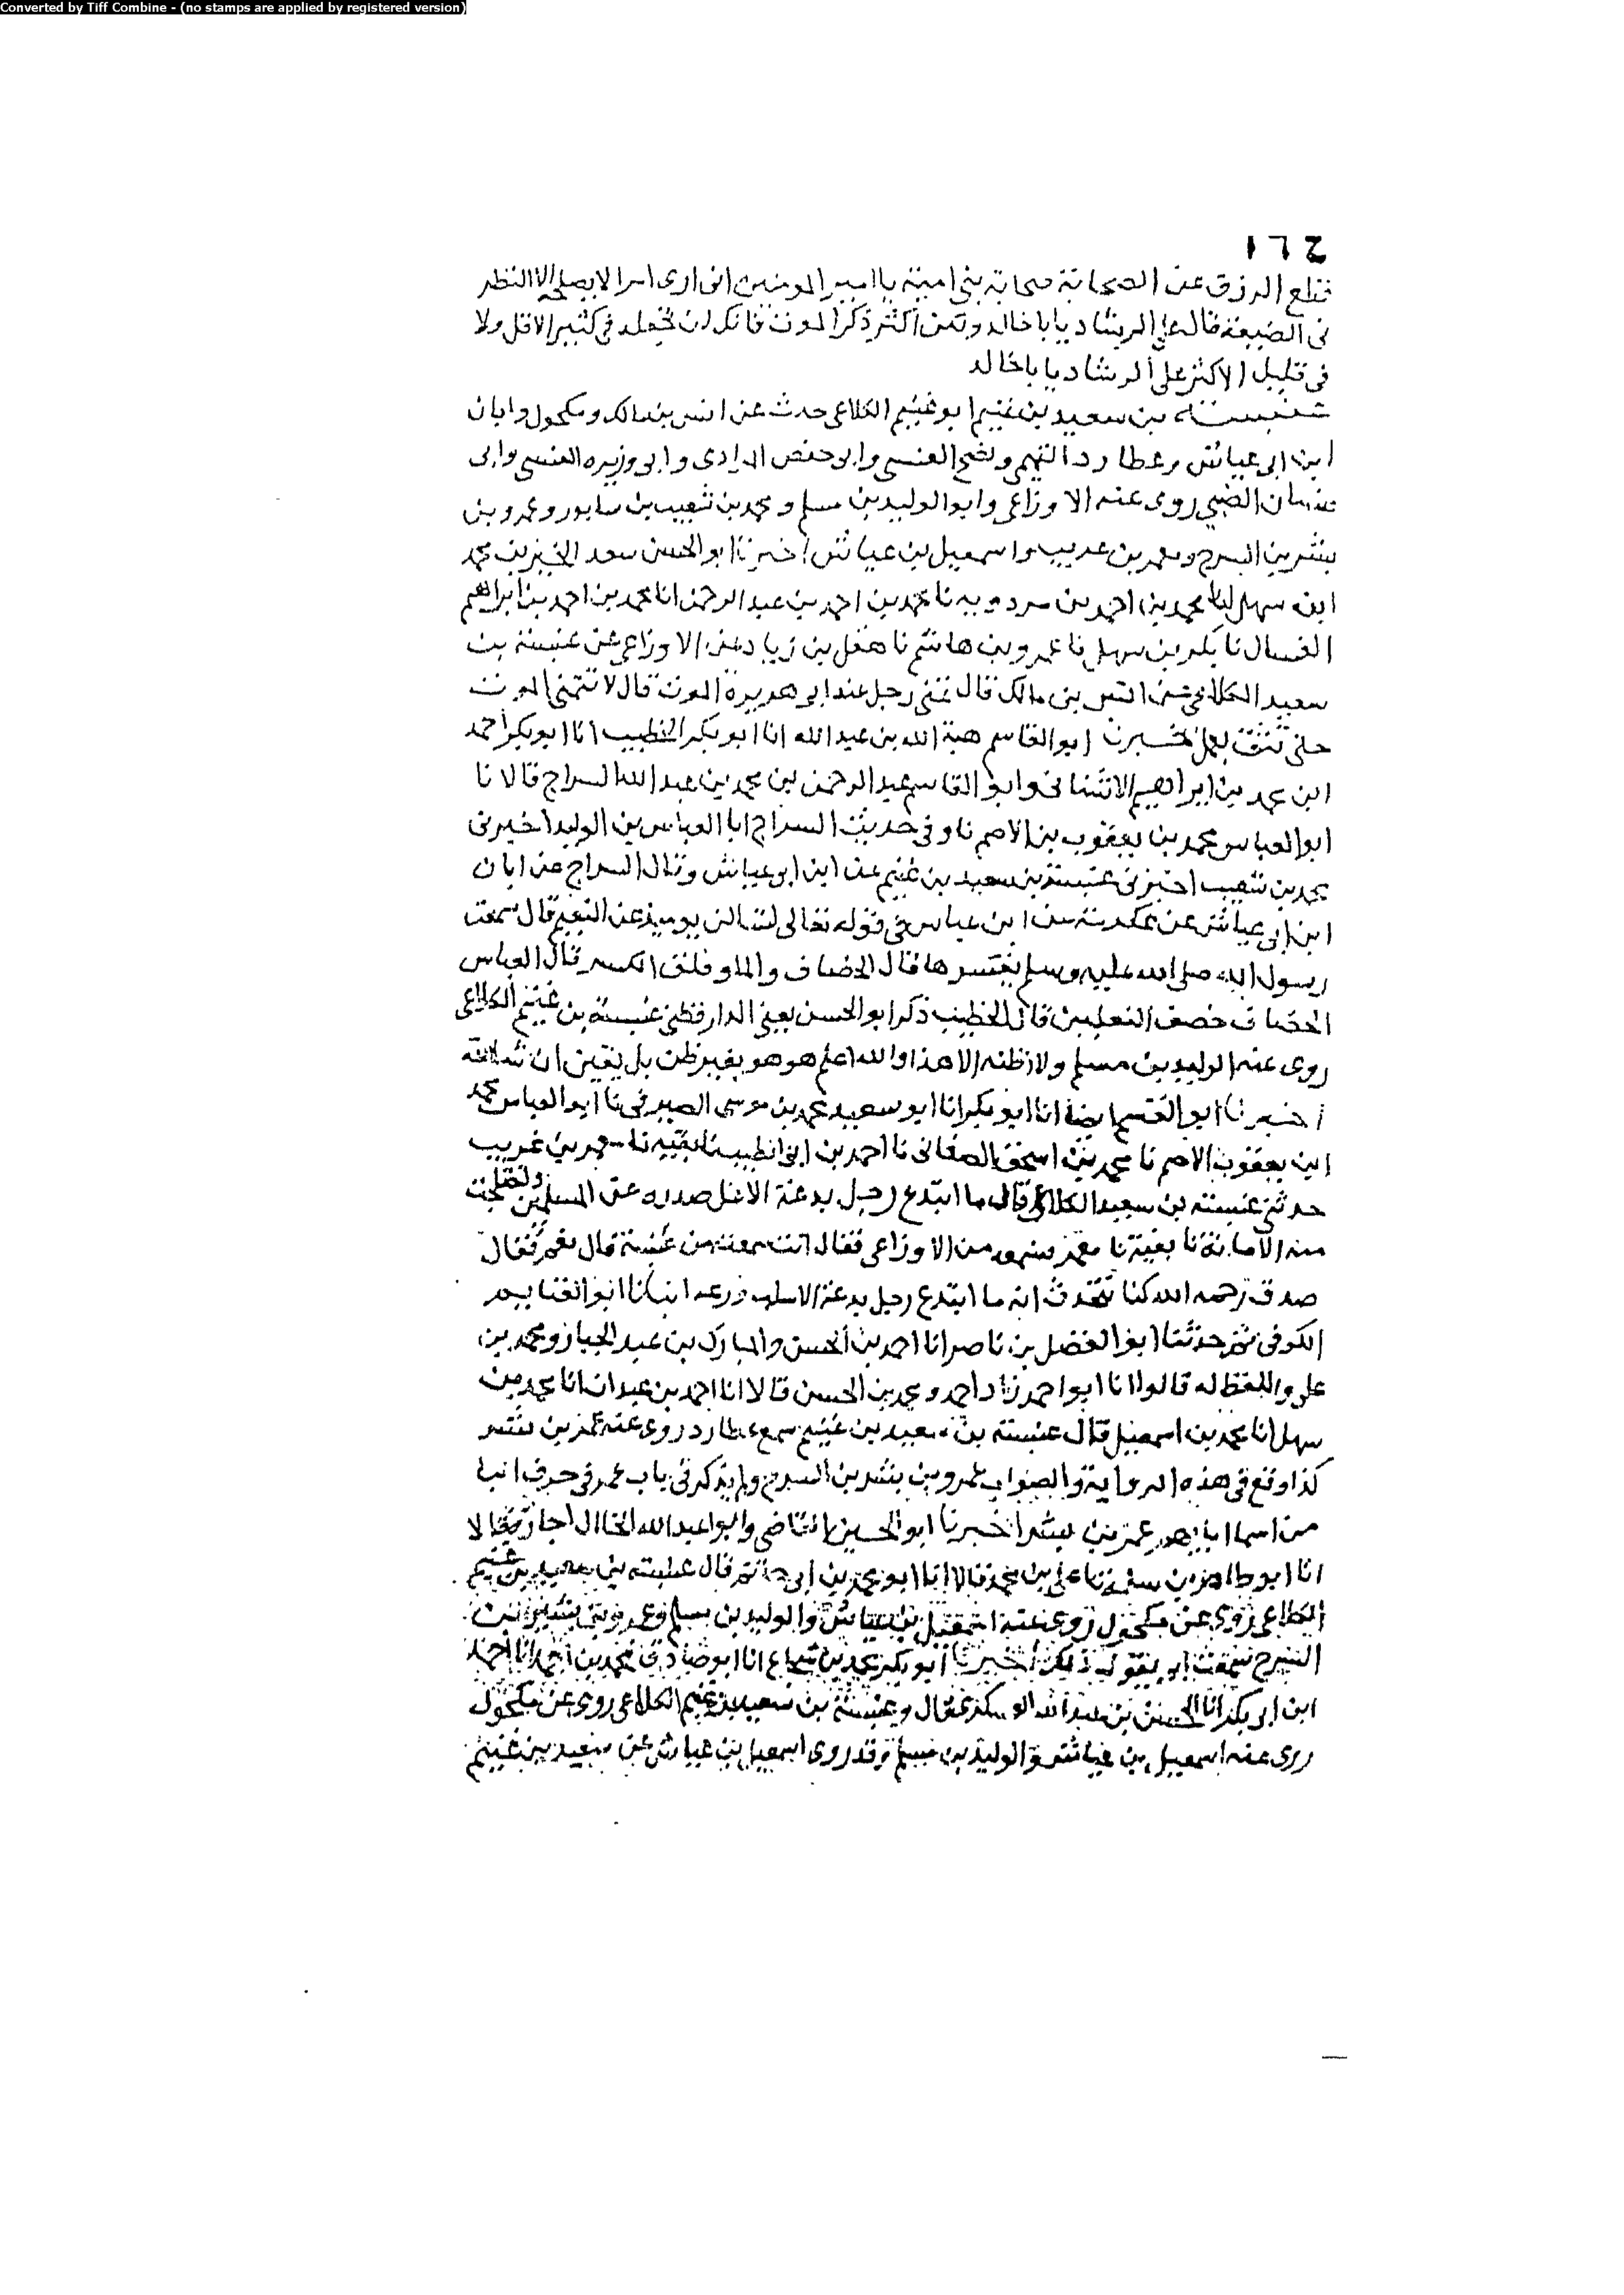 Converted by Tiff Combine - (no stamps are applied by registered version)
١٦٤
تقطع الرزق عن الصحابة صحابة بني امية يا امير المومنين انى ارى امرا لا يصلحه الا النظر
فى الضيعة قال على الرشاد يا با خالد وبمن اكثر ذكر الموت فانك لن تجعله في كثير الا قل ولا
فى قليل الا كثر على الرشاد يا با خالد
عنبسة بن سعيد بن غنيم ابو غنيم الكلاعى حدث عن انس بن مالك ومكحول وابان
ابن ابى عياش وعطارد التيمى ونصيح العنسى وابى حفص الدارى وابى وزيره العنسى وابى
عثمان الضبي روى عنه الاوزاعى وابو الوليد بن مسلم ومحمد بن شعيب بن سابور وعمرو بن
بشر بن السرح ومعمر بن عريب واسمعيل بن عياش اخبرنا ابو الحسن سعد الخير بن محمد
ابن سهل انا محمد بن احمد بن مردويه نا محمد بن احمد بن عبد الرحمن انا محمد بن احمد بن ابراهيم
العسال نا بكر بن سهل نا عمرو بن هاشم نا هقل بن زياد عن الاوزاعى عن عنبسة بن
سعيد الكلاعى عن انس بن مالك قال تمنى رجل عند ابى هريرة الموت قال لا تتمنى الموت
حتى تثق بعمل اخبرنا ابو القاسم هبة الله بن عبد الله انا ابو بكر الخطيب انا ابو بكر احمد
ابن محمد بن ابراهيم الاشنانى وابو القاسم عبد الرحمن بن محمد بن عبد الله السراج قالا نا
ابو العباس محمد بن يعقوب بن الاصم نا وفى حديث السراج انا العباس بن الوليد اخبرنى
محمد بن شعيب اخبرنى عنبسة بن سعيد بن غنيم عن ابن ابو عياش وقال السراج عن ابان
ابن ابى عياش عن عكرمة عن ابن عباس فى قوله تعالى لتسالن يوميذ عن النعيم قال سمعت
رسول الله صلى الله عليه وسلم يفسرها قال الخصاف والماء وفلق الكسر قال العباس
الخصاف خصف النعلين قال الخطيب ذكر ابو الحسن يعنى الدارقطنى عنبسة بن غنيم الكلاعى
روى عنه الوليد بن مسلم ولا اظنه الا هذا والله اعلم هو هو بغير ظن بل يقين ان شا الله
اخبرنا ابو القسم ايضا انا ابو بكر انا ابو سعيد محمد بن موسى الصيرفى نا ابو العباس محمد
ابن يعقوب الاصم نا محمد بن اسحق الصغانى نا احمد بن ابى الطيب نا بقيه نا معمر بن غريب
حدثنى عنبسة بن سعيد الكلاعى قال ما ابتدع رجل بدعة الا غل صدره على المسلمين واختلجت
منه الامانة نا بقية نا معمر من الاوزاعى فقال انت سمعته من عنبسة قال نعم فقال
صدق رحمه الله كنا نتحدث انه ما ابتدع رجل بدعة الا سلب ورعه انبانا ابو الغنايم
الكوفى ثم حدثنا ابو الفضل بن ناصر انا احمد بن الحسن والمبارك بن عبد الجبار ومحمد بن
على واللفظ له قالوا انا ابو احمد زاد احمد ومحمد بن الحسن قالا انا احمد بن عبدان انا محمد بن
سهل انا محمد بن اسمعيل قال عنبسة بن سعيد بن غنيم سمع عطارد روى عنه عمر بن بشر
كذا وقع فى هذه الرواية والصواب عمرو بن بشر بن السرح ولم يذكر فى باب عمر فى حرف البا
من اسما ابايهم عمر بن بشر اخبرنا ابو الحسين القاضى وابو عبد الله الخلال اجازة قالا
انا ابو طاهر بن سلمة نا على بن محمد قالا انا ابو محمد بن ابى حاتم قال عنبسة بن سعيد بن غنيم
الكلاعى روى عن مكحول روى عنه اسمعيل بن عياش والوليد بن مسلم وعمرو بن بشر بن
السرح سمعت ابى يقول ذلك اخبرنا ابو بكر محمد بن شجاع انا ابو صادق محمد بن احمد انا احمد
ابن ابى بكر انا الحسن بن عبد الله العسكرى قال وعنبسة بن سعيد بن غنيم الكلاعى روى عن مكحول
روى عنه اسمعيل بن عياش والوليد بن مسلم وقد روى اسمعيل بن عياش عن سعيد بن غنيم